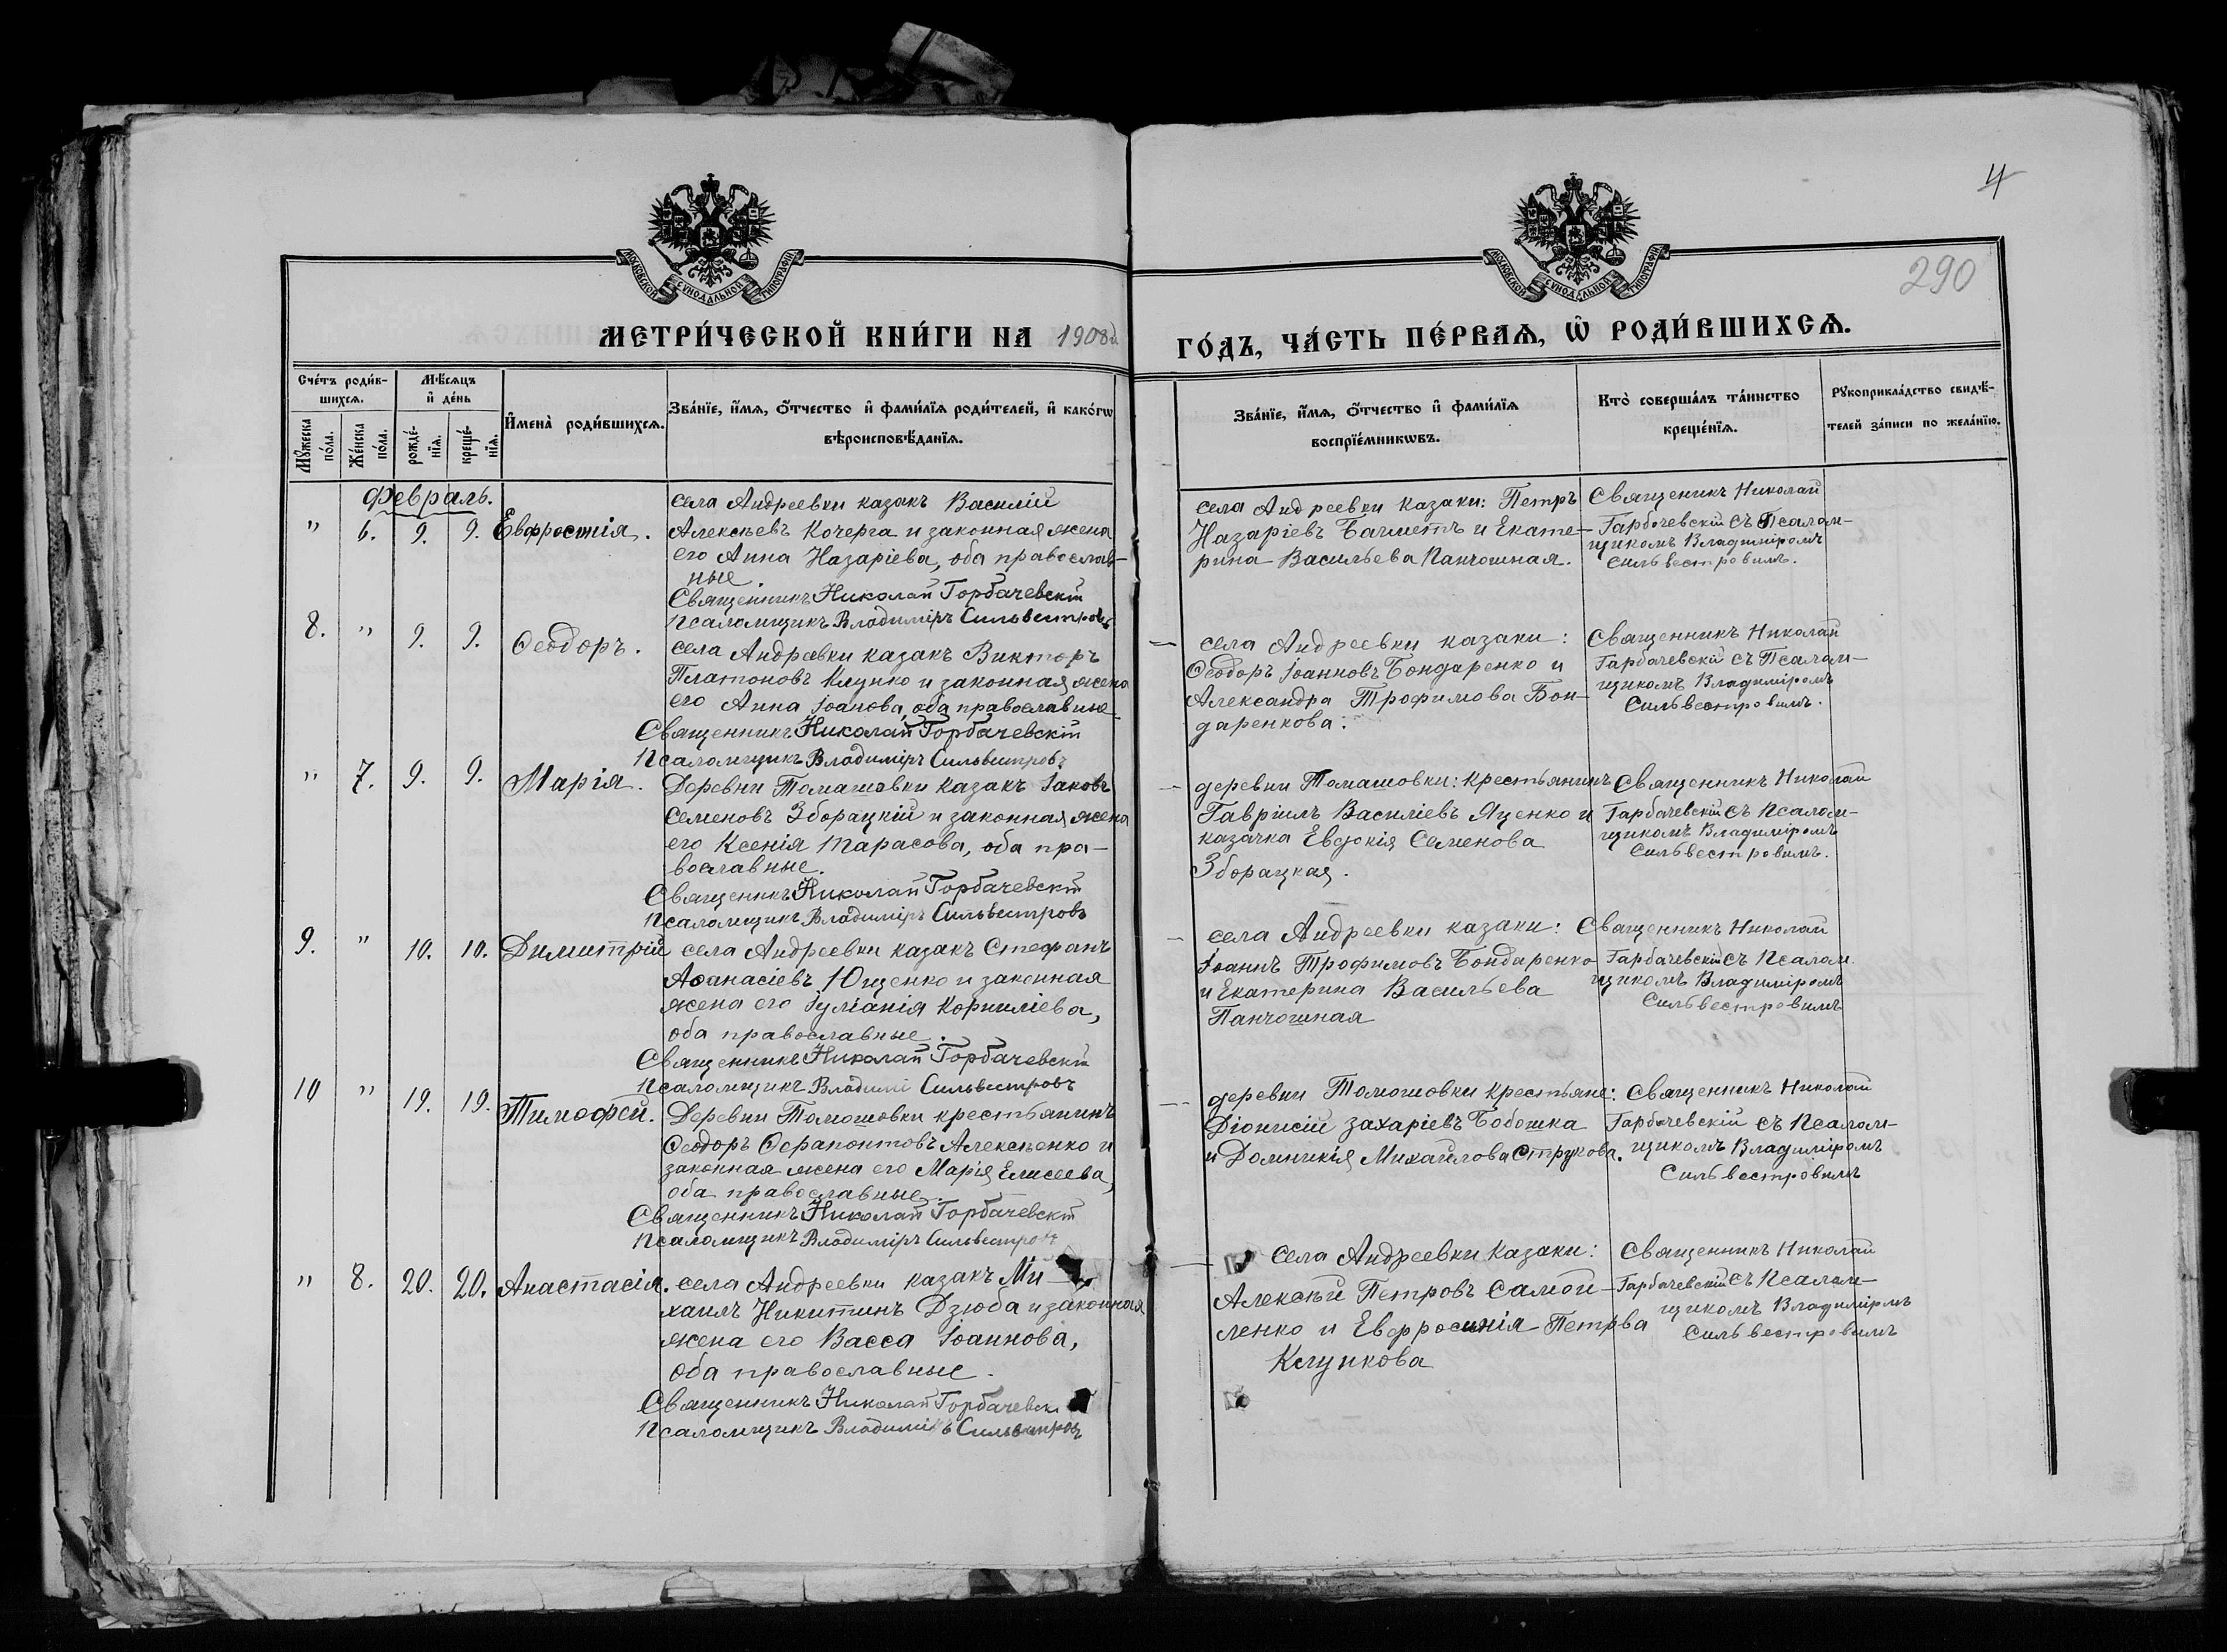 4
290
МОСКОВСКОЙ СУНОДАЛЬНОЙ ТИПОГРАФІИ
МОСКОВСКОЙ СУНОДАЛЬНОЙ ТИПОГРАФІИ
МЕТРИ́ЧЕСКОЙ КНИ́ГИ НА 1908
ГО́ДЪ, ЧА́СТЬ ПЕ́РВАѦ, Ѡ҆ РОДИ́ВШИХСѦ.
Сче́тъ роди́в-
шихсѧ.
Мꙋ́жеска по́ла.
Же́нска по́ла.
Мѣ́сѧцъ
и҆ де́нь
рожде́-
нїѧ.
креще́-
нїѧ.
И҆мена̀ роди́вшихсѧ.
Зва́нїе, и҆́мѧ, ѻ҆́тчество и҆ фами́лїѧ роди́телей, и҆ како́гѡ
вѣроисповѣ́данїѧ.
Зва́нїе, и҆́мѧ, ѻ҆́тчество и҆ фами́лїѧ
воспрїе́мникѡвъ.
Кто̀ соверша́лъ та́инство
креще́нїѧ.
Рꙋкоприкла́дство свидѣ́-
телей за́писи по жела́нїю.
Февраль.
" 6. 9. 9. Евфросинія.
села Андреевки казакъ Василій
Алексѣевъ Кочерга и законная жена
его Анна Назаріева, оба православ-
ные.
Священникъ Николай Горбачевскій
Псаломщикъ Владиміръ Сильвестровъ
села Андреевки казаки: Петръ
Назаріевъ Бачметъ и Екате-
рина Васильева Панчошная.
Священикъ Николай
Гарбачевскій съ Псалом-
щикомъ Владиміромъ
Сильвестровимъ.
8. " 9. 9. Ѳеодоръ.
села Андреевки казакъ Викторъ
Платоновъ Клунко и законная жена
его Анна Іоанова, оба православные
Священникъ Николай Горбачевскій
Псаломщикъ Владиміръ Сильвестровъ
села Андреевки казаки:
Ѳеодоръ Іоанновъ Бондаренко и
Александра Трофимова Бон-
даренкова.
Священникъ Николай
Гарбачевскій съ Псалом-
щикомъ Владиміромъ
Сильвестровимъ.
" 7. 9. 9. Марія.
Деревни Томашовки казакъ Іаковъ
Семеновъ Зборацкій и законная жена
его Ксенія Тарасова, оба пра-
вославные.
Священикъ Николай Горбачевскій
Псаломщикъ Владиміръ Сильвестровъ
деревни Томашовки: крестьянинъ
Гавріилъ Василіевъ Яценко и
казачка Евдокія Семенова
Зборацкая.
Священникъ Николай
Гарбачевскій съ Псалом-
щикомъ Владиміромъ
Сильвестровимъ.
9. " 10. 10. Димитрій
села Андреевки казакъ Стефанъ
Аѳанасіевъ Ющенко и законная
жена его Іуліанія Корниліева,
оба православные.
Священникъ Николай Горбачевскій
Псаломщикъ Владимі Сильвестровъ
села Андреевки казаки:
Іоаннъ Трофимовъ Бондаренко
и Екатерина Васильева
Панчошная
Священникъ Николай
Гарбачевскій съ Псалом.
щикомъ Владиміромъ
Сильвестровимъ
10 " 19. 19. Тимофей.
Деревни Томошовки крестьянинъ
Ѳеодоръ Ѳерапонтовъ Алексѣенко и
законная жена его Марія Елисеева,
оба православные.
Священникъ Николай Горбачевскій
Псаломщикъ Владиміръ Сильвестровъ
деревни Томошовки крестьяне:
Діонисій Захаріевъ Бобошка
и Домникія Михайлова Струкова.
Священникъ Николай
Гарбачевскій съ Псалом-
щикомъ Владиміромъ
Сильвестровимъ
" 8. 20. 20. Анастасія.
села Андреевки казакъ Ми-
хаилъ Никитинъ Дзюба и законная
жена его Васса Іоаннова,
оба православные.
Священникъ Николай Горбачевск
Псаломщикъ Владиміръ Сильвестровъ
Села Андреевки казаки:
Алексѣй Петровъ Самой-
ленко и Евфросинія Петрва
Клункова
Священникъ Николай
Гарбачевскій съ Псалом-
щикомъ Владимірмъ
Сильвестровимъ